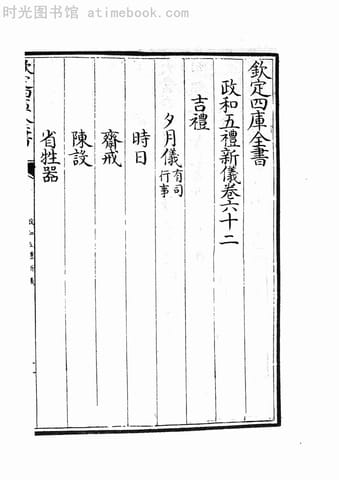 时光图书馆 - atimebook.com
欽定四庫全書
政和五禮新儀卷六十二
吉禮
夕月儀有司行事
時日
齋戒
陳設
省牲器